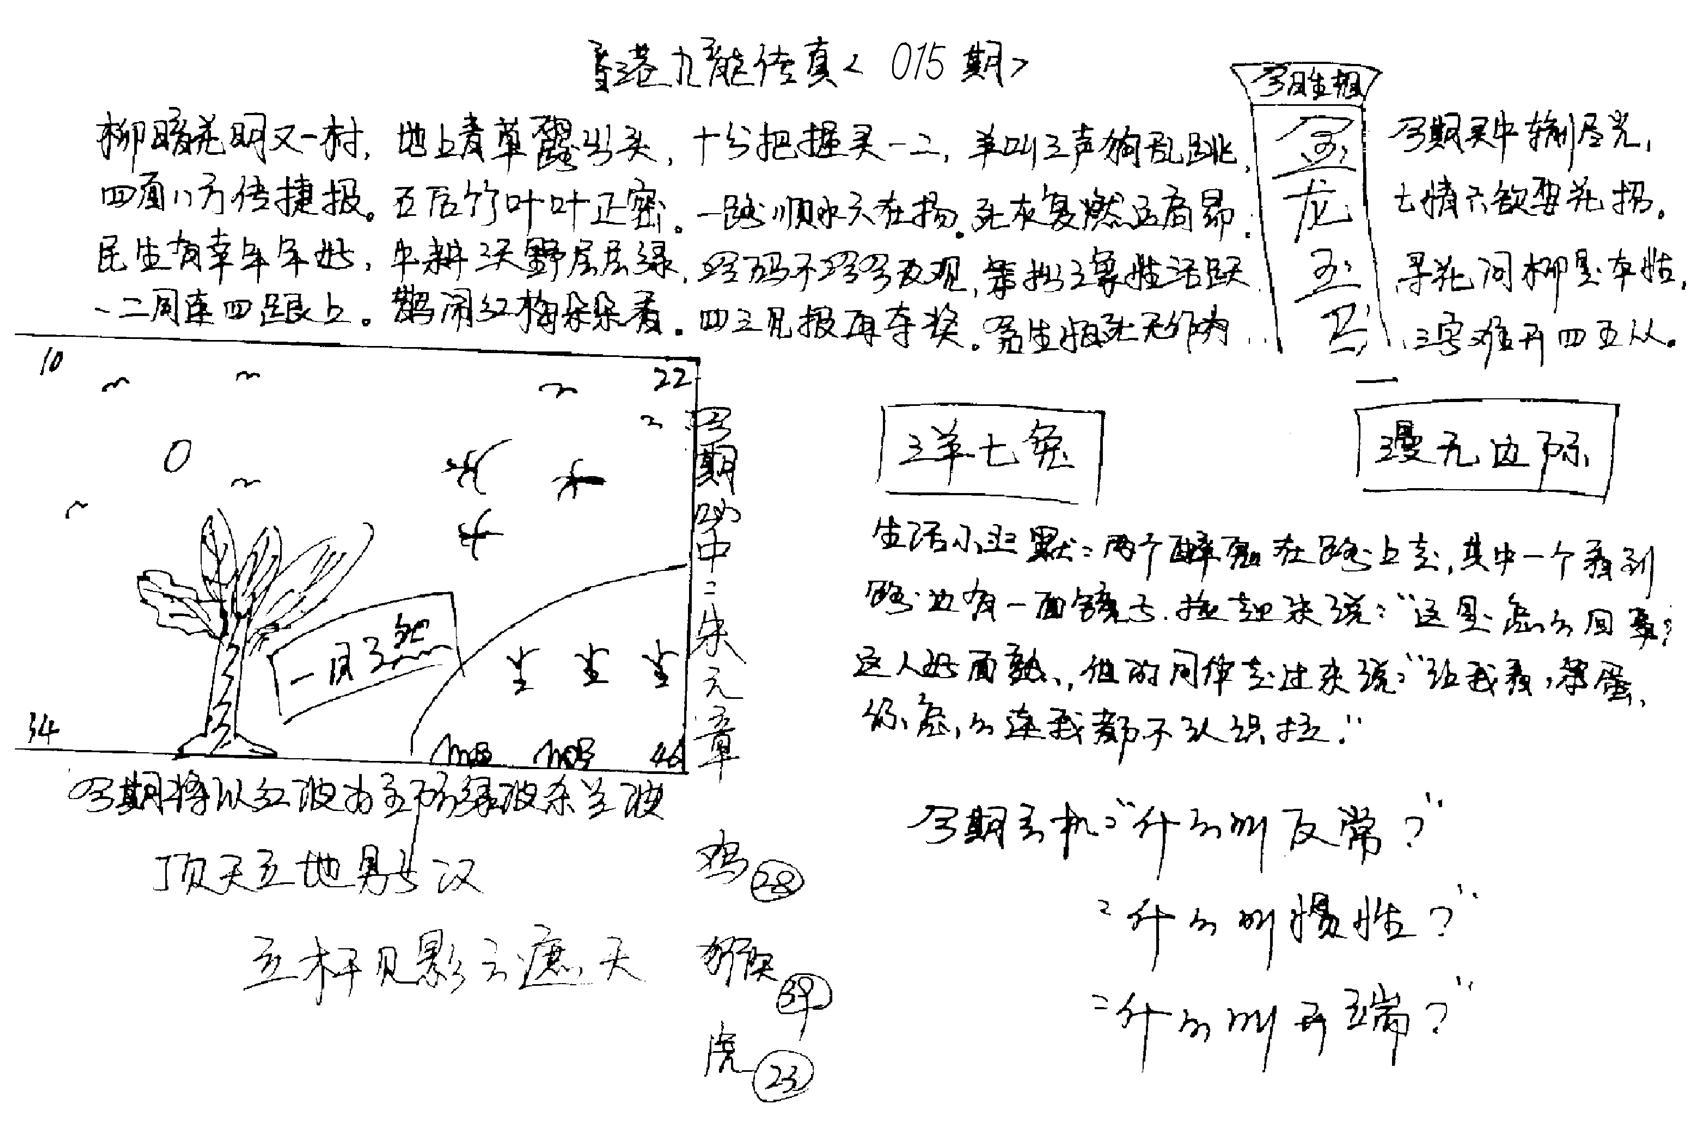 香港九龙传真<015期>
柳暗花明又一村，地上青草露出头，十分把握买一二，羊叫三声狗乱跳，
四面八方传捷报。五后竹叶叶正密。一路顺水六在扬。死灰复燃还高昂。
民生有幸年年好，牛耕沃野层层绿，
一二同来四跟上。鹊闹红梅朵朵香。四三见报再夺奖。
今日生相
金
龙
玉
兔
今期买中输尽光，
七情六欲要花招。
寻花问柳是本性，
三字难开四五从。
10
22
34
46
一目了然
今期必中：朱元章
今期将以红波为主防绿波杀兰波
顶天立地男子汉
立杆见影云遮天
鸡(28)
猴(39)
虎(23)
三羊七兔
漫无边际
生活小幽默：两个醉鬼在路上走，其中一个看到
路边有一面镜子，捡起来说：“这是怎么回事？
这人好面熟，他的同伴走过来说：“让我看，笨蛋，
你怎么连我都不认识拉。”
今期玄机：“什么叫反常？”
：“什么叫惯性？”
：“什么叫开端？”